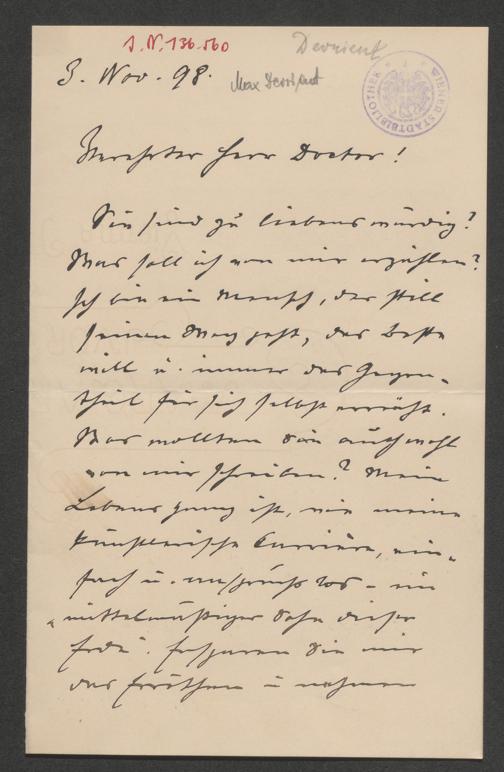 J.N. 136.560
Devrient
3. Nov. 98.
Max Devrient
WIENER STADTBIBLIOTHEK
Verehrter Herr Doctor!
Sie sind zu liebenswürdig?
Was soll ich von mir erzählen?
Ich bin ein Mensch, der still
seinen Weg geht, das Beste
will u. immer das Gegen-
theil für sich selbst erreicht.
Was wollten Sie auch wohl
von mir schreiben? Mein
Lebensgang ist, wie meine
künstlerische Carrière, ein-
fach u. anspruchslos - ein
"mittelmäßiger Sohn dieser
Erde". Ersparen Sie mir
das Erröthen u nehmen